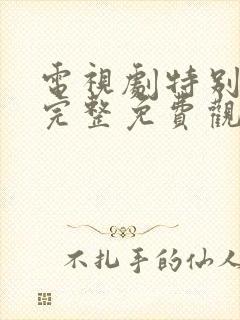 電視劇特別
完整免費觀
不扎手的仙人